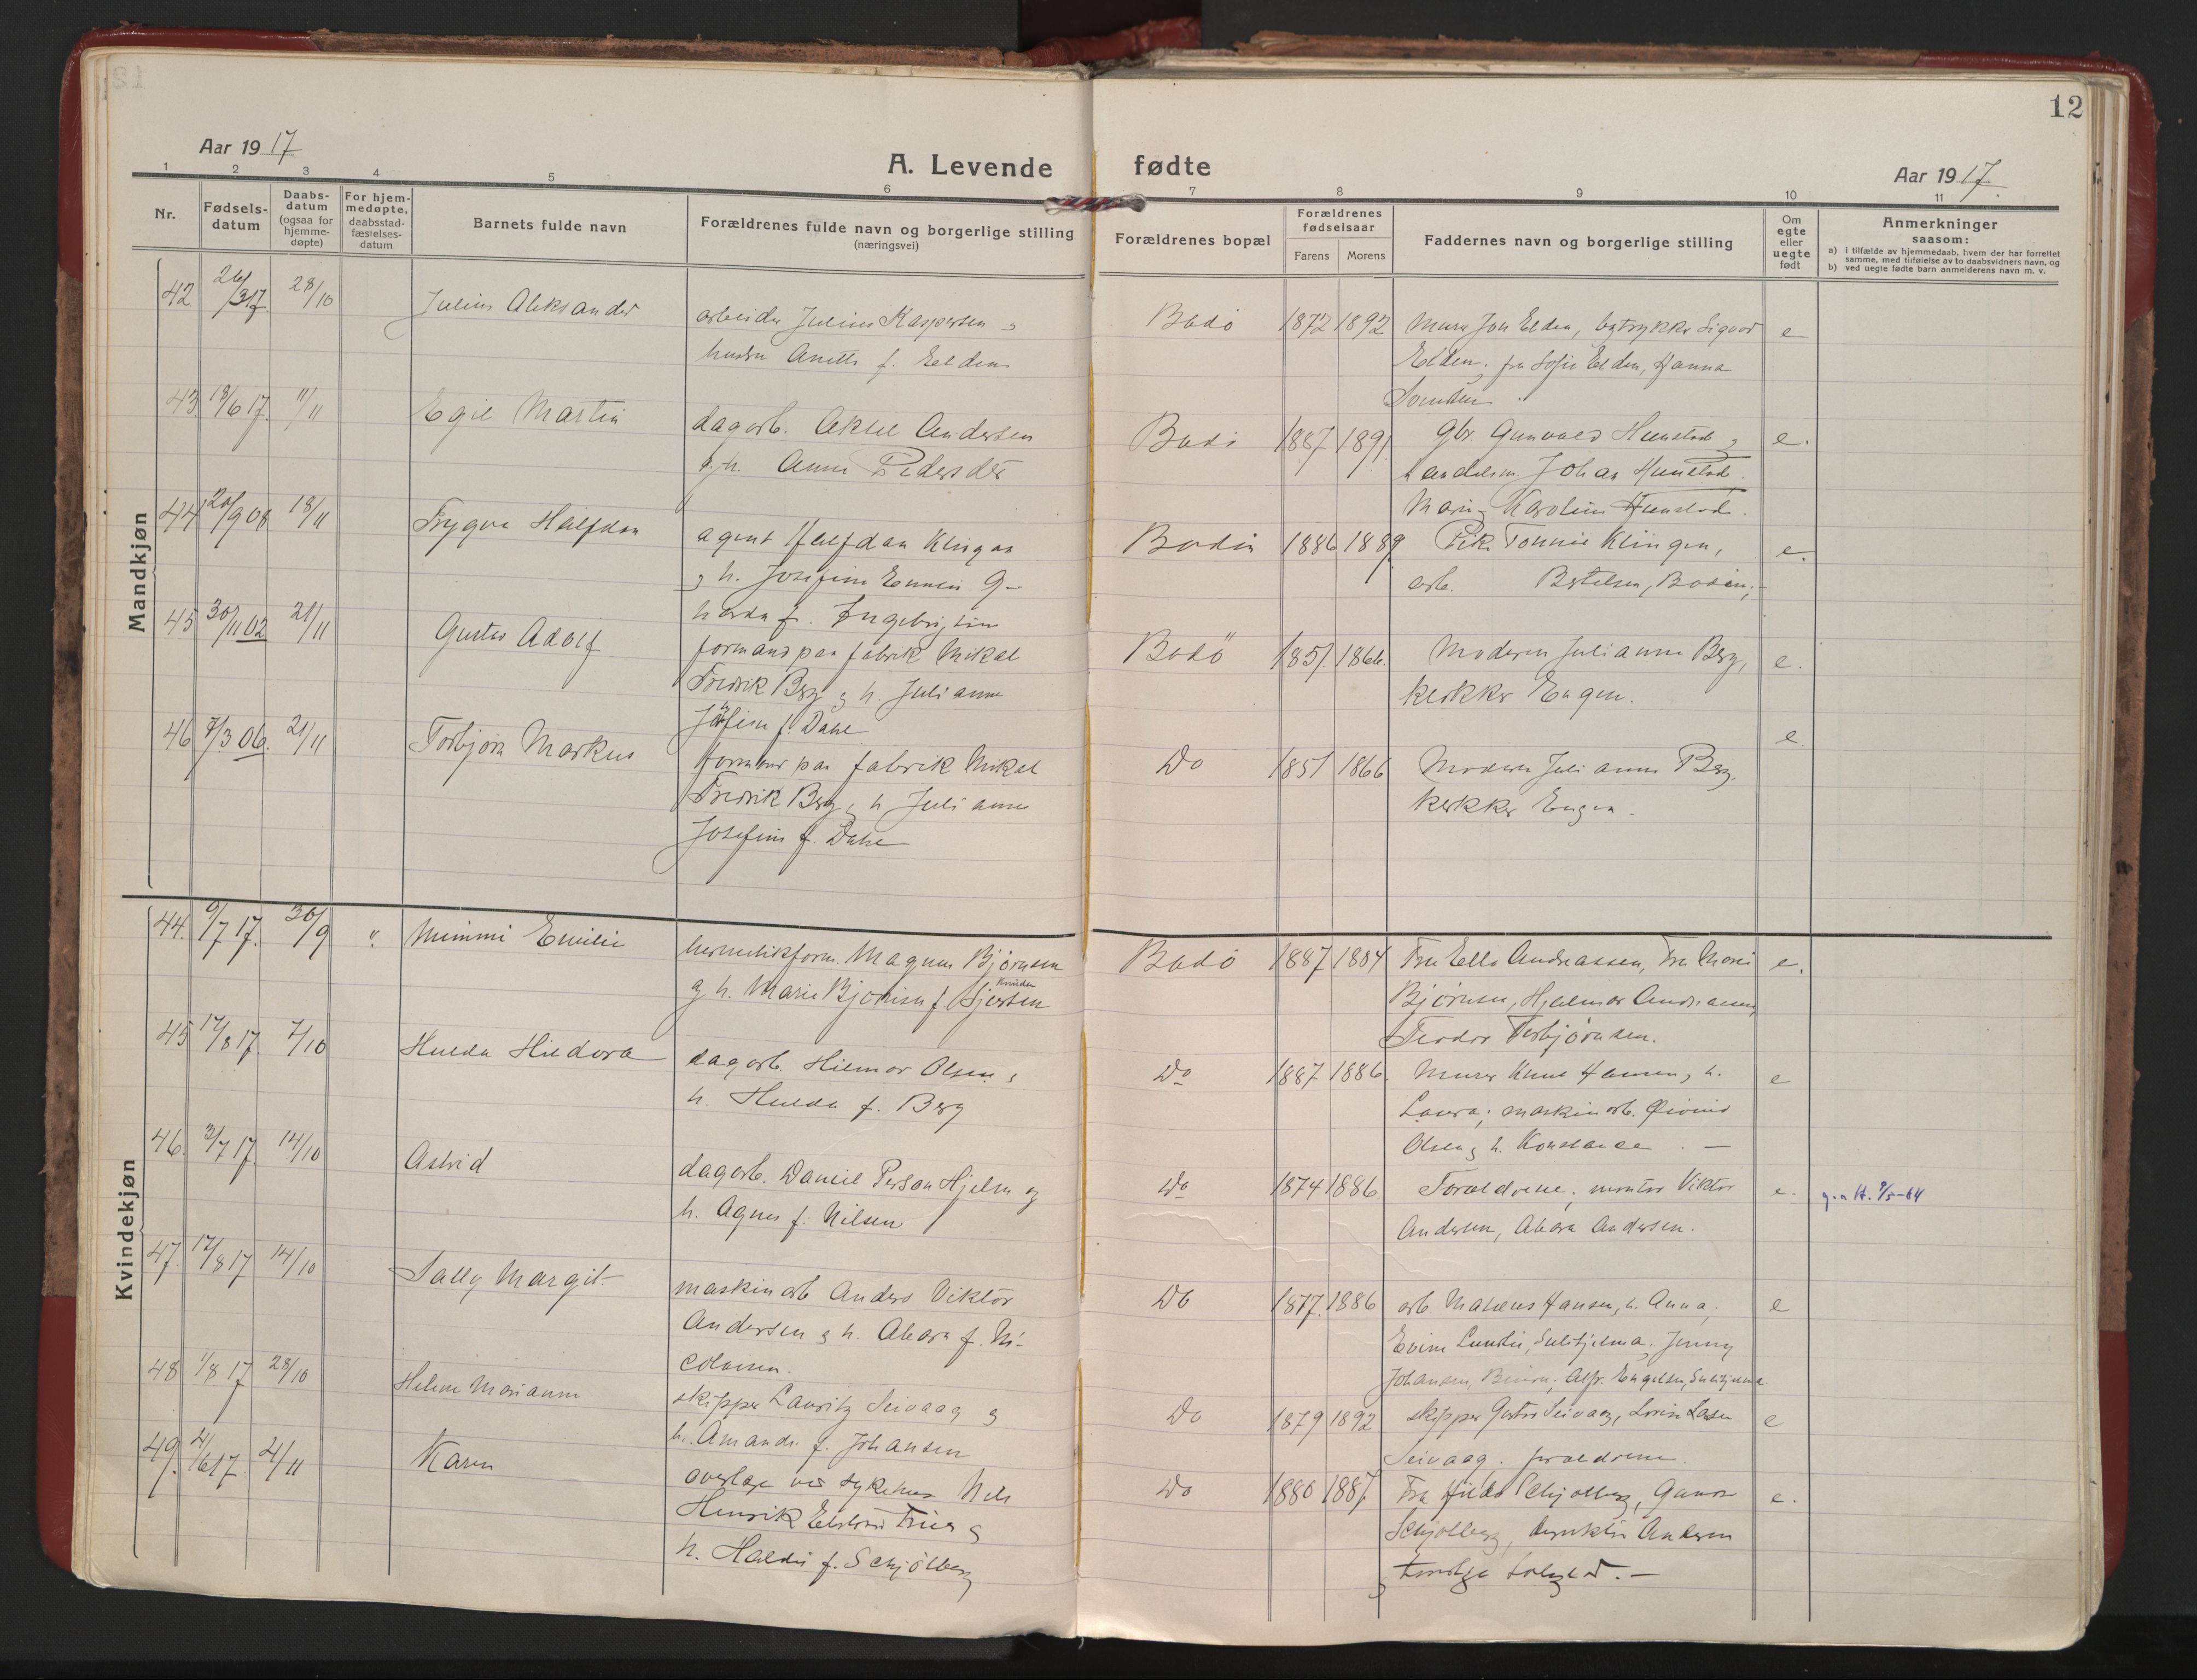 12
Aar 1917
A. Levende fødte
Aar 1917.
1 2 3 4 5 6 7 8 9 10 11
Nr.
Fødsels-
datum
Daabs-
datum
(ogsaa for
hjemme-
døpte)
For hjem-
medøpte,
daabsstad-
fæstelses-
datum
Barnets fulde navn
Forældrenes fulde navn og borgerlige stilling
(næringsvei)
Forældrenes bopæl
Forældrenes
fødselsaar
Farens Morens
Faddernes navn og borgerlige stilling
Om
egte
eller
uegte
født
Anmerkninger
saasom:
a) i tilfælde av hjemmedaab, hvem der har forrettet
samme, med tilføielse av to daabsvidners navn, og
b) ved uegte fødte barn anmelderens navn m. v.
Mandkjøn
42 26/3 17. 28/10 Julius Aleksander
arbeider Julius Kaspersen
hustru Anette f. Elden
Bodø 1872 1892
Murer Jon Elden, Sigurd
Elden, fru Sofie Elden, Hanna
e
43 18/6 17. 11/11 Egil Martin
dagarb. Aksel Andersen
g. h. Anna Pedersdtr
Bodø 1887 1891
Gbr. Gunvald Hunstad g
handelsm. Johan Hunstad.
Marie Karoline Hunstad.
e.
44 20/9 08 18/11 Trygve Halfdan
agent Halfdan Klingen
g h. Josefine G-
f. Ingebrigtsen
Bodin 1886 1889
Klingen,
arb. Bertelsen, Bodin,
e.
45 30/11 02 21/11 Gustav Adolf
formand paa fabrik Mikal
Fredrik Berg g h. Julianne
Josefine f. Dahl
Bodö 1851 1866.
Moderen Julianne Berg,
klokker Engen.
e.
46 7/3 06. 21/11 Torbjørn Markus
formand paa fabrik Mikal
Fredrik Berg g h Julianne
Josefine f. Dahl
Do 1851 1866
Moderen Julianne Berg.
klokker Engen.
e.
Kvindekjøn
44. 9/7 17. 30/9 " Mimmi Emilie
hermetikform. Magnus Bjørnsen
g h. Marie Bjørnsen f.
Bodø 1887 1884
Fru Ella Andreassen, Fru Marie
Bjørnsen, Hjalmar Andreassen,
Teodor Torbjørnsen.
e.
45 17/8 17. 7/10 Hulda Hildora
dagarb. Hilmar Olsen g
h. Hulda f. Berg
Do 1887 1886.
Murer Knut Hansen g h.
Laura; maskinarb. Øivind
Olsen g h. Konstance. —
e
46. 2/7 17. 14/10 Astrid
dagarb. Daniel Person Hjelm og
h. Agnes f. Nilsen
Do 1874 1886.
Forældrene, montør Viktor
Andersen, Alvara Andersen.
e.
47. 17/8 17 14/10 Sally Margit
maskinarb Anders Viktor
Andersen g h. Alvara f. Ni-
colaisen.
Do 1877. 1886
arb. Hansen, h. Anna,
Sulitjelma, Jenny
Johansen, Alfr. Engelsen, Sulitjelma
e
48 1/8 17 28/10 Helene Marianne
skipper Lauritz Seivaag g
h. Amanda f. Johansen
Do 1879 1892
skipper Gustav Seivaag,
Seivaag. forældrene.
e
49. 4/6 17. 4/11 Karen
overlæge ved sykehus Nils
Henrik g
h. Haldis f. Schjølberg
Do 1880 1887.
Fru Schjølberg, Gunnar
Schjølberg, direktør Andersen
e.